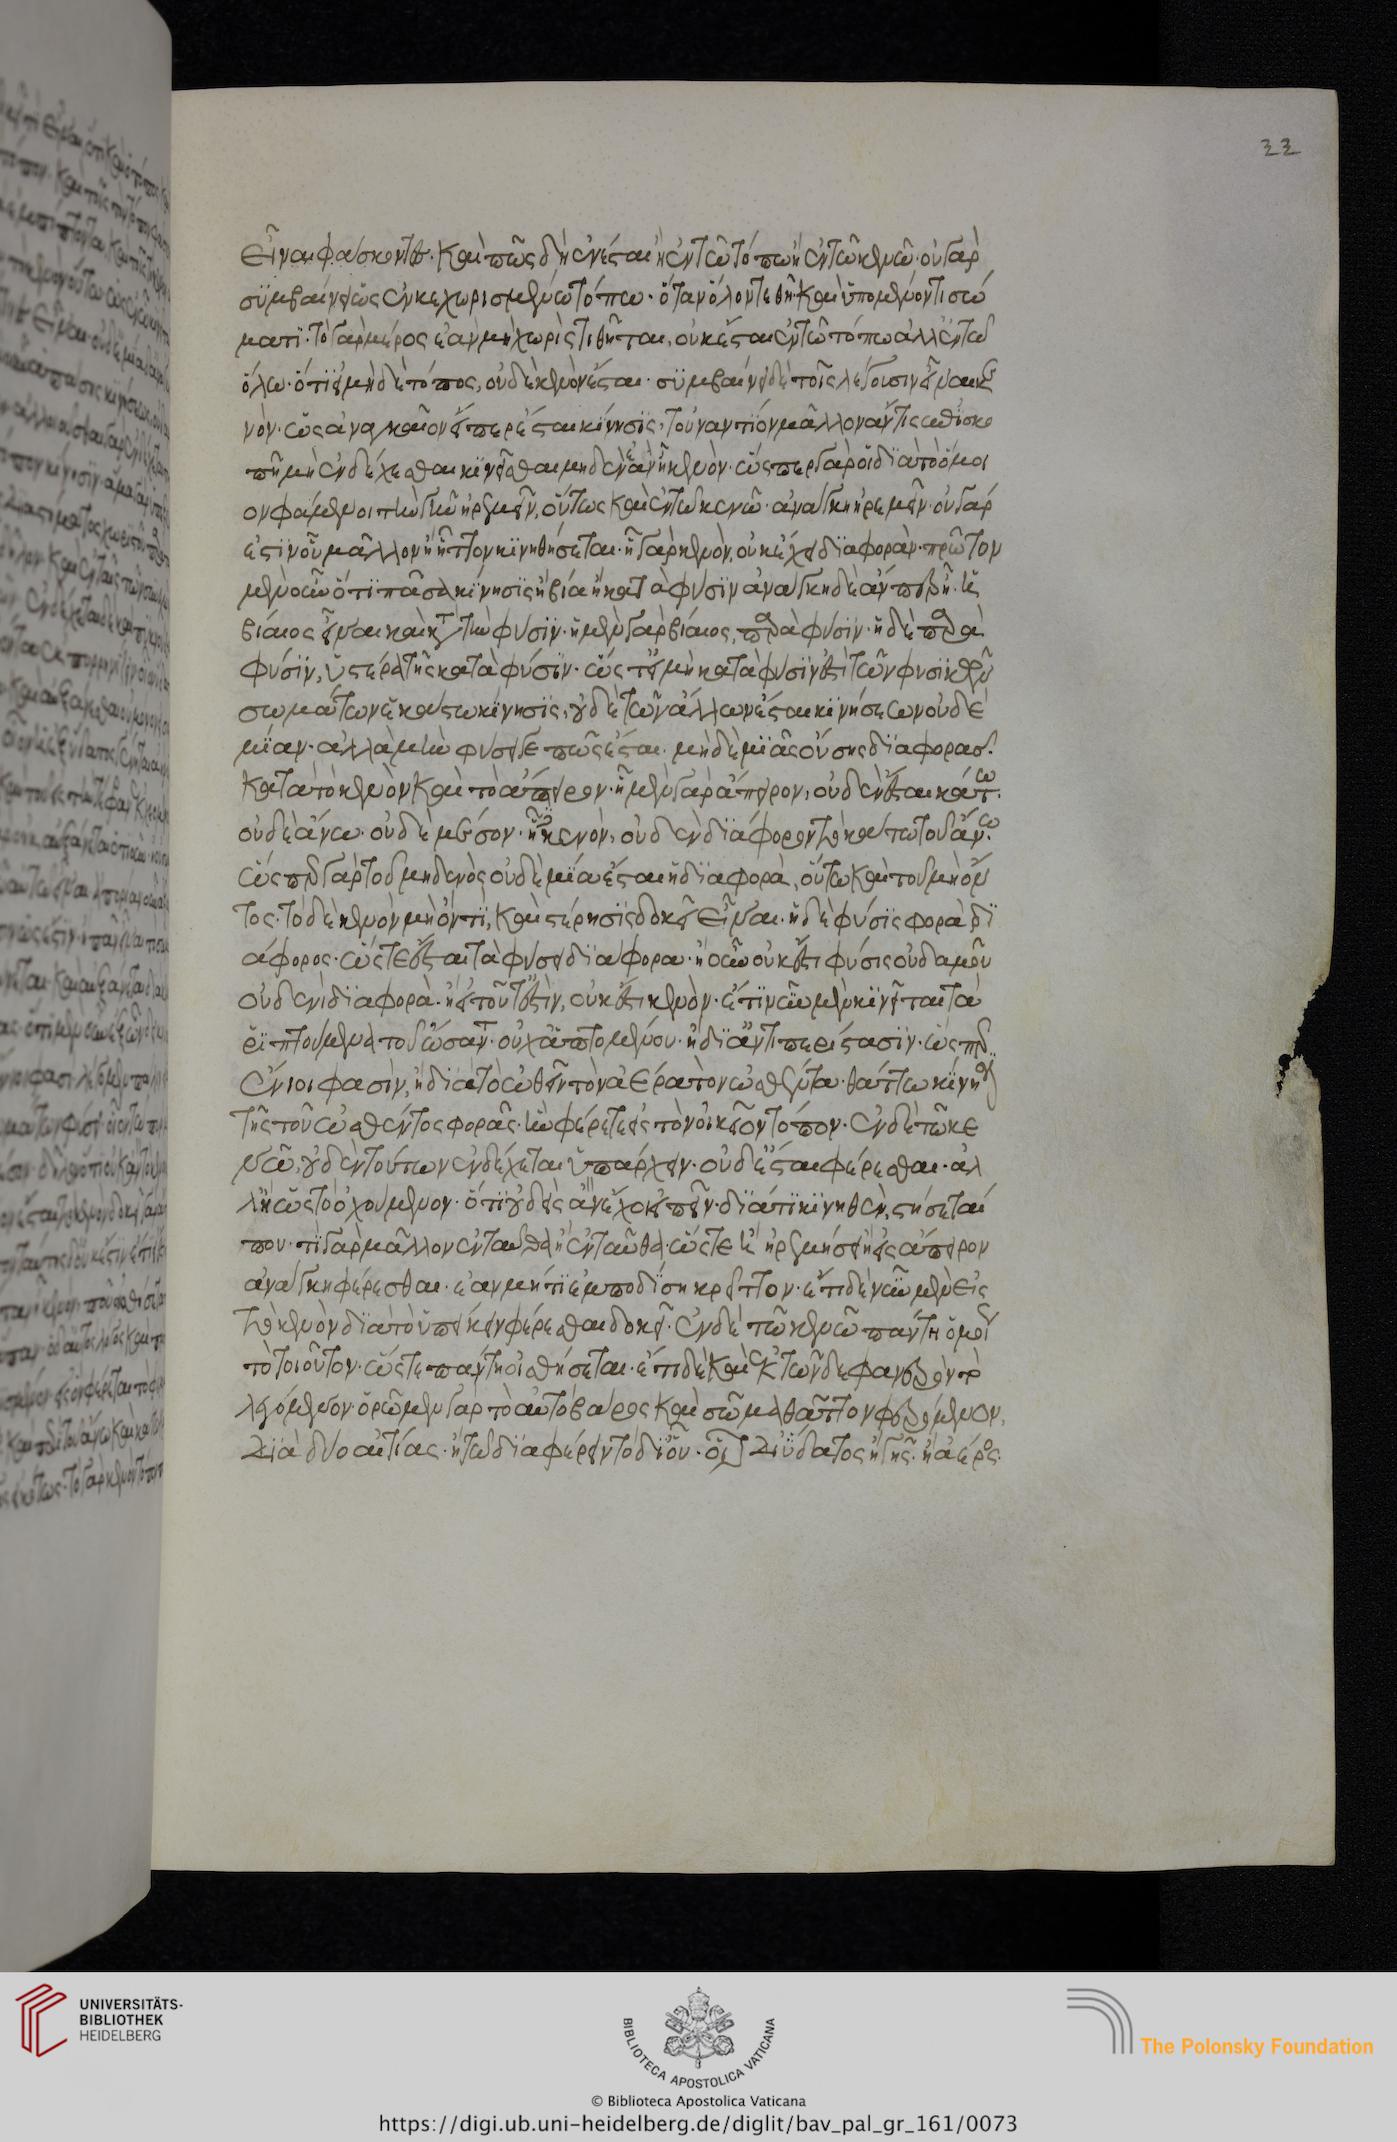 εἶναι φάσκοντες· καὶ πῶς δὴ ἐνέσται ἢ ἐν τῶ τόπω ἢ ἐν τῶ κενῶ· οὐ γὰρ
συμβαίνει ὡς ἐν κεχωρισμένω τόπω· ὅταν ὅλον τεθῆ· καὶ ὑπομένοντι σώ
ματι· τὸ γὰρ μέρος ἐὰν μὴ χωρὶς τιθῆται, οὐκ ἔσται ἐν τῶ τόπω ἀλλ' ἐν τῶ
ὅλω· ὅτι εἰ μὴ δὲ τόπος, οὐδὲ κενὸν ἔσται· συμβαίνει δὲ τοῖς λέγουσιν εἶναι κε
νόν· ὡς ἀναγκαῖον εἴπερ ἔσται κίνησις, τοὐναντίον μᾶλλον ἄν τις ἐπισκο
πῆ μὴ ἐνδέχεσθαι κινεῖσθαι μηδὲν ἐὰν ἦ κενόν· ὥσπερ γὰρ οἱ διὰ τὸ ὅμοι
ον φάμενοι τὴν γῆν ἠρεμεῖν, οὕτως καὶ ἐν τῶ κενῶ· ἀνάγκη ἠρεμεῖν· οὐ γάρ
ἐστιν οὗ μᾶλλον ἢ ἧττον κινηθήσεται· ἧ γὰρ κενόν, οὐκ ἔχει διαφοράν· πρῶτον
μὲν οὖν ὅτι πᾶσα κίνησις ἢ βία ἢ κατὰ φύσιν ἀνάγκη δὲ ἄν περ ἦ ἡ
βίαιος εἶναι καὶ κατὰ τὴν φύσιν· ἡ μὲν γὰρ βίαιος, παρὰ φύσιν· ἡ δὲ παρὰ
φύσιν, ὑστέρα τῆς κατὰ φύσιν· ὥς τ' εἰ μὴ κατὰ φύσιν ἐστὶ τῶν φυσικῶν
σωμάτων ἑκάστω κίνησις, οὐδὲ τῶν ἄλλων ἔσται κινήσεων οὐδε
μίαν· ἀλλὰ μὴν φύσει γε πῶς ἔσται· μηδεμιᾶς οὔσης διαφορᾶς·
κατὰ τὸ κενὸν καὶ τὸ ἄπειρον· ἧ μὲν γὰρ ἄπειρον, οὐδὲν ἔσται κάτω·
οὐδὲ ἄνω· οὐδὲ μέσον· ἧ κενὸν, οὐδὲν διάφορον τὸ κάτω τοῦ ἄνω·
ὥσπερ γὰρ τοῦ μηδενὸς οὐδεμία ἔσται ἡ διαφορὰ, οὕτω καὶ τοῦ μὴ ὄν
τος· τὸ δὲ κενὸν μὴ ὄν τι, καὶ στέρησις δοκεῖ εἶναι· ἡ δὲ φύσις φορὰ δι
άφορος· ὥστε ἔσται τὰ φύσει διάφορα· ἢ οὖν οὐκ ἔστι φύσις οὐδαμοῦ
οὐδενὶ διαφορὰ· ἢ εἰ τοῦτ' ἔστιν, οὐκ ἔστι κενόν· ἔτι νῦν μὲν κινεῖται τὰ
ῥιπτούμενα τοῦ ὤσαντος οὐχ ἁπτομένου· ἢ δι' ἀντιπερίστασιν· ὥσπερ
ἔνιοι φασὶν, ἢ διὰ τὸ ὠθεῖν τὸν ἀέρα τὸν ὠσθέντα· θάττω κίνησιν
τῆς τοῦ ὠσθέντος φορᾶς· ἣν φέρεται εἰς τὸν οἰκεῖον τόπον· ἐν δὲ τῶ κε
νῶ, οὐδὲν τούτων ἐνδέχεται ὑπάρχειν· οὐδὲ ἔσται φέρεσθαι· ἀλ
λ' ἢ ὡς τὸ ὀχούμενον· ὅτι οὐδεὶς ἂν ἔχοι εἰπεῖν· διὰ τί κινηθὲν, στήσεταί
που· τί γὰρ μᾶλλον ἐνταῦθα ἢ ἐνταῦθα· ὥστε ἢ ἠρεμήσει ἢ εἰς ἄπειρον
ἀνάγκη φέρεσθαι· ἐὰν μή τι ἐμποδίση κρεῖττον· ἔτι δὲ νῦν μὲν εἰς
τὸ κενὸν διὰ τὸ ὑπείκειν φέρεσθαι δοκεῖ· ἐν δὲ τῶ κενῶ πάντη ὁμοί
τὸ τοιοῦτον· ὥστε πάντη οἰσθήσεται· ἔτι δὲ καὶ ἐκ τῶνδε φανερὸν τὸ
λεγόμενον· ὁρῶμεν γὰρ τὸ αὐτὸ βάρος καὶ σῶμα θᾶττον φερόμενον,
διὰ δύο αἰτίας· ἢ τῶ διαφέρειν τὸ δι' οὗ· οἷον δι' ὕδατος ἢ γῆς· ἢ ἀέρος·
UNIVERSITÄTS-
BIBLIOTHEK
HEIDELBERG
BIBLIOTECA APOSTOLICA VATICANA
The Polonsky Foundation
© Biblioteca Apostolica Vaticana
https://digi.ub.uni-heidelberg.de/diglit/bav_pal_gr_161/0073